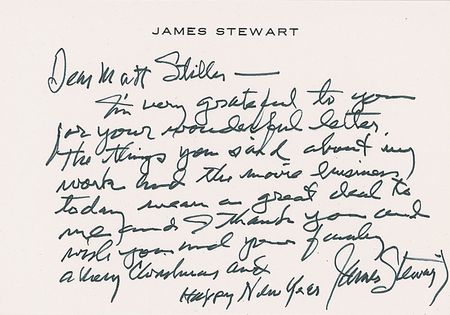 JAMES STEWART
Dear Matt Stiller —
I'm very grateful to you
for your wonderful letter.
The things you said about my
work and the movie business
today mean a great deal to
me and I thank you and
wish you and your family
a Merry Christmas and
Happy New Year
James Stewart